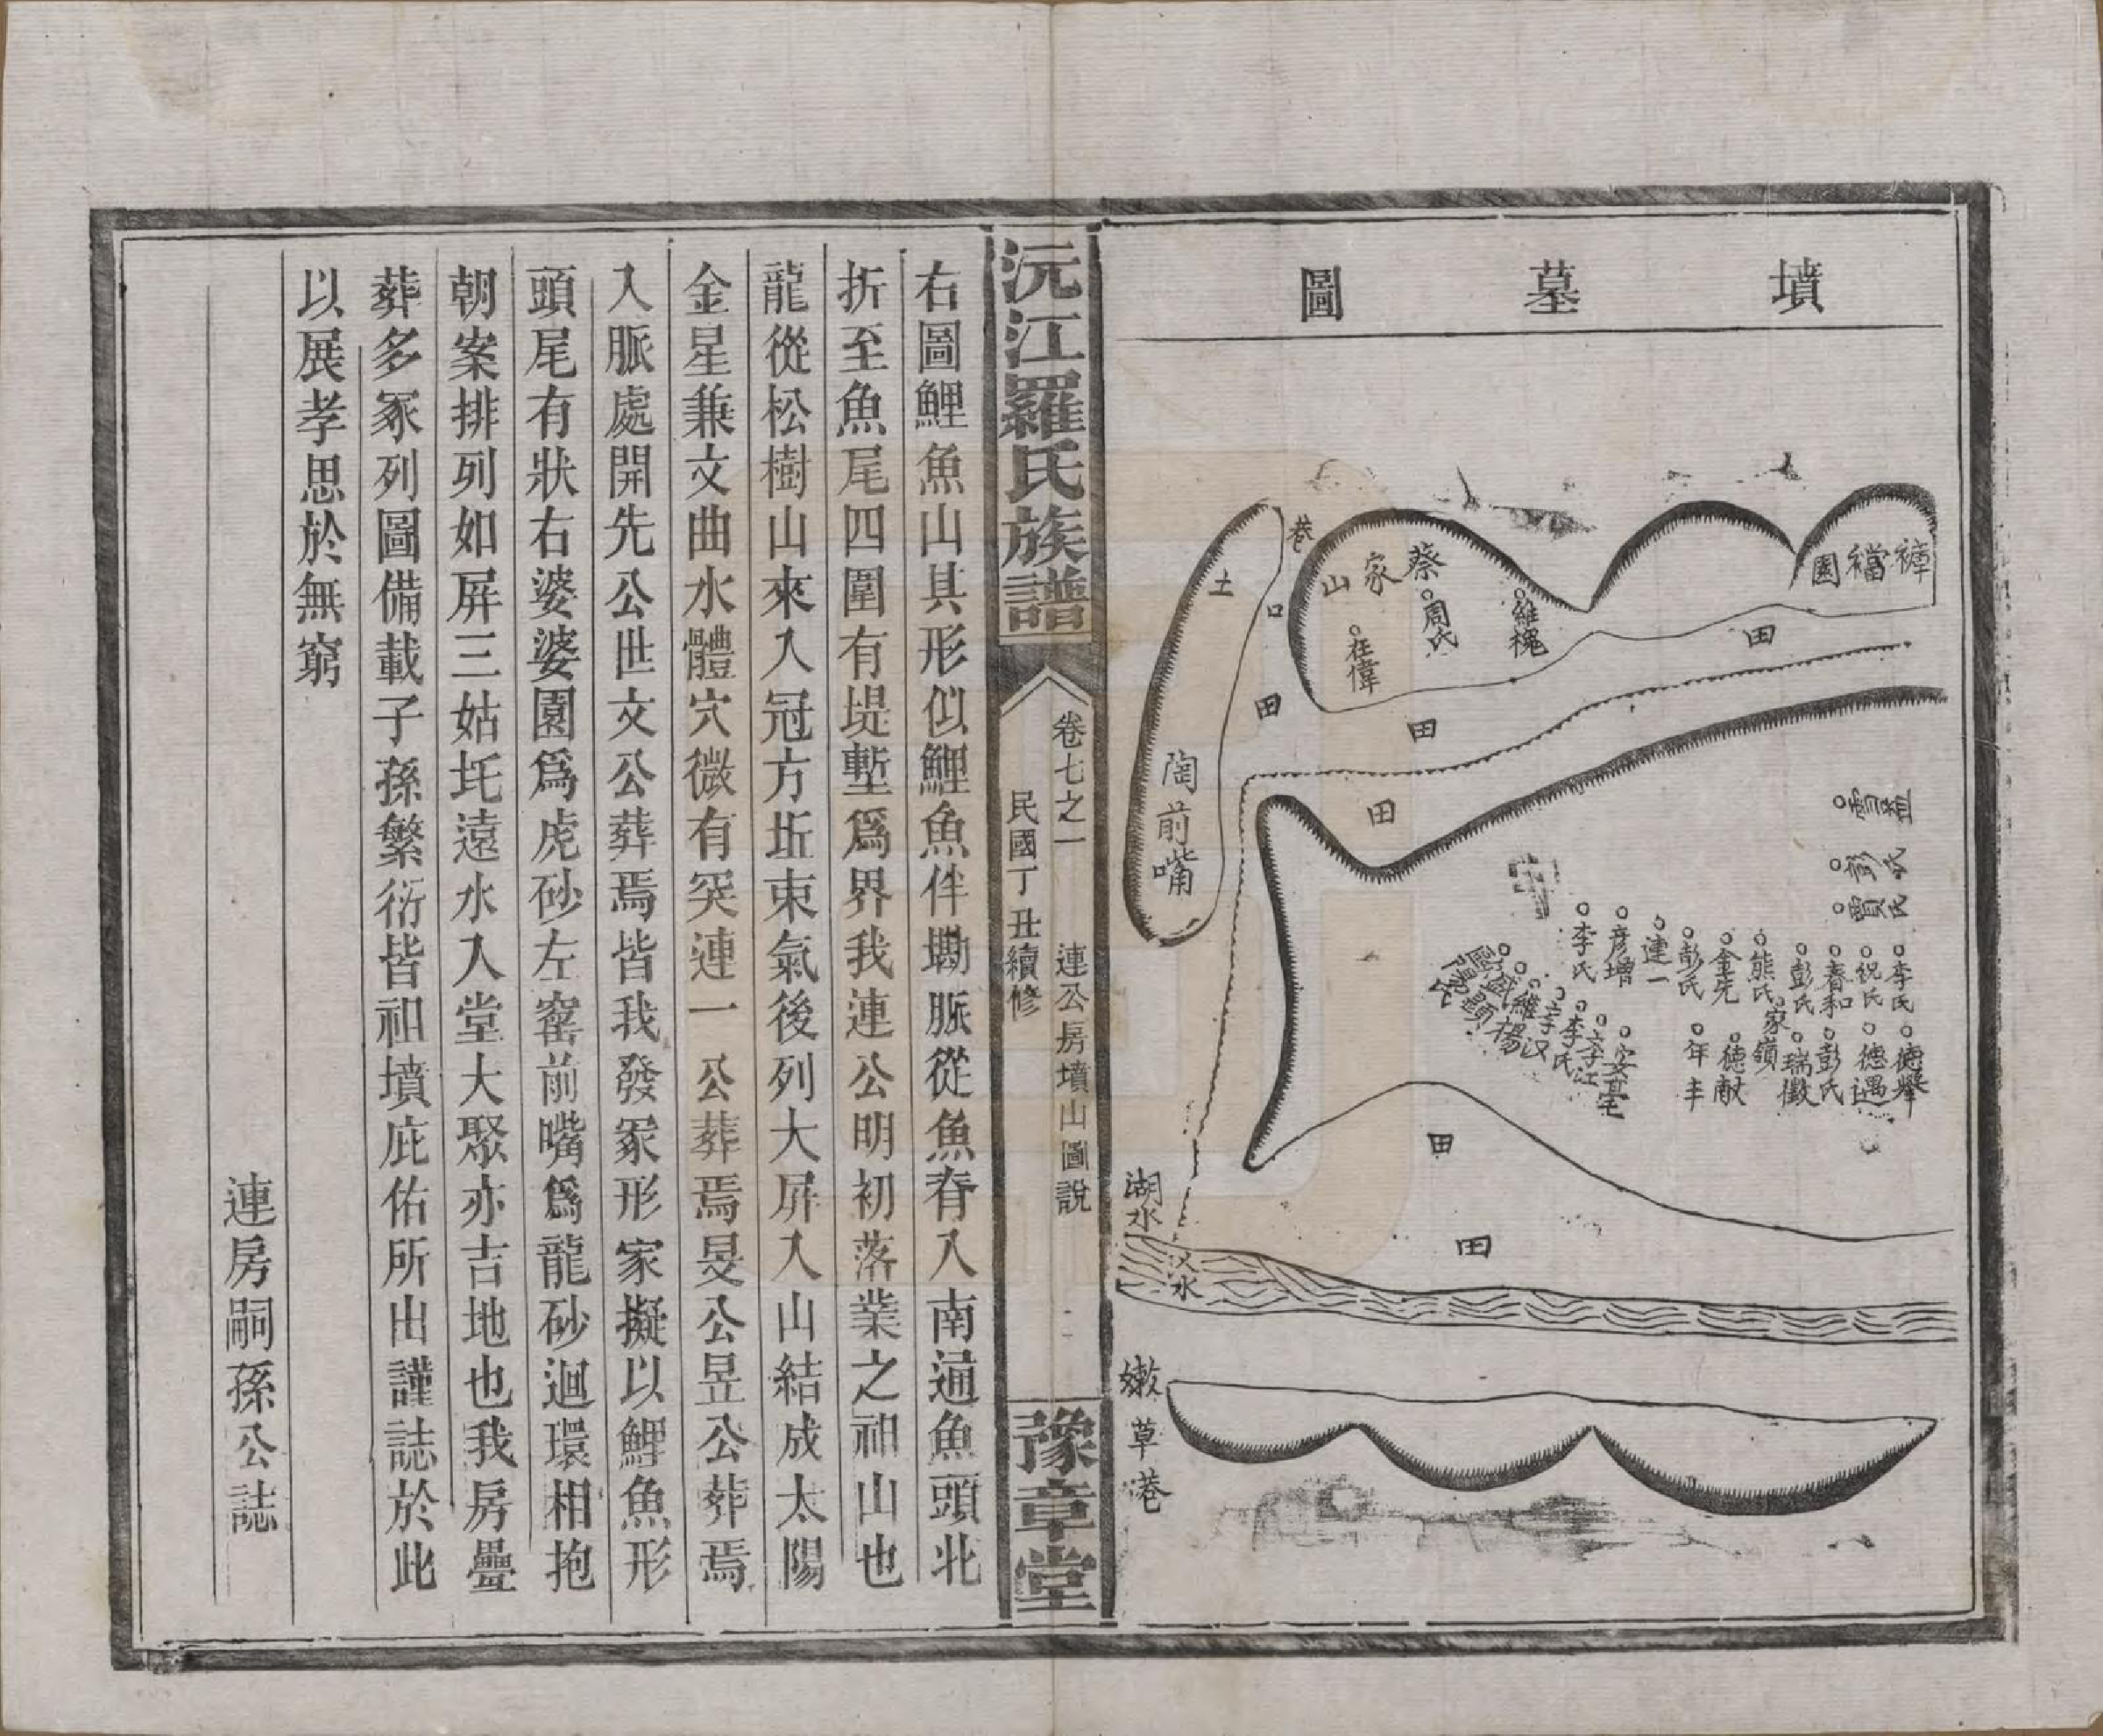 墳墓圖
褲襠園
田
維槐
蔡家山
周氏
在偉
巷口
土
田
田
田
陶前嘴
彭氏
賈氏
李氏
祝氏
春和
彭氏
熊氏
金先
彭氏
連一
彥增
李氏
德舉
德遇
彭氏
瑞徵
家嶺
德猷
年丰
李江
李氏
田
田
湖水
汊水
嫩草巷
沅江羅氏族譜
卷七之一
連公房墳山圖說
民國丁丑續修
豫章堂
右圖鯉魚山其形似鯉魚伴墈脈從魚脊入南通魚頭北
折至魚尾四圍有堤塹爲界我連公明初落業之祖山也
龍從松樹山來入冠方坵束氣後列大屏入山結成太陽
金星兼文曲水體穴微有突連一公葬焉旻公昱公葬焉
入脈處開先公世文公葬焉皆我發冢形家擬以鯉魚形
頭尾有狀右婆婆園爲虎砂左窰前嘴爲龍砂迴環相抱
朝案排列如屏三姑圫遠水入堂大聚亦吉地也我房疊
葬多冢列圖備載子孫繁衍皆祖墳庇佑所出謹誌於此
以展孝思於無窮
連房嗣孫公誌